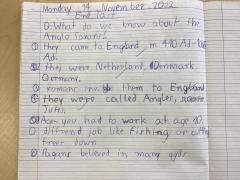 Monday 14 November 2022
End last
Q. What do we know about the
Anglo Saxons?
① they came to England in 410 Ad-
Ad.
② they were Netherland, Denmark,
Germany.
③ romans inv. them to England
④ they were called Angles,
Jutes.
you had to work at age 10.
diffrend job like fishing or
tree down
Pagans believed in many gods